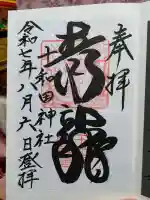 奉拝
青龍
十和田神社
令和元年八月六日登拝